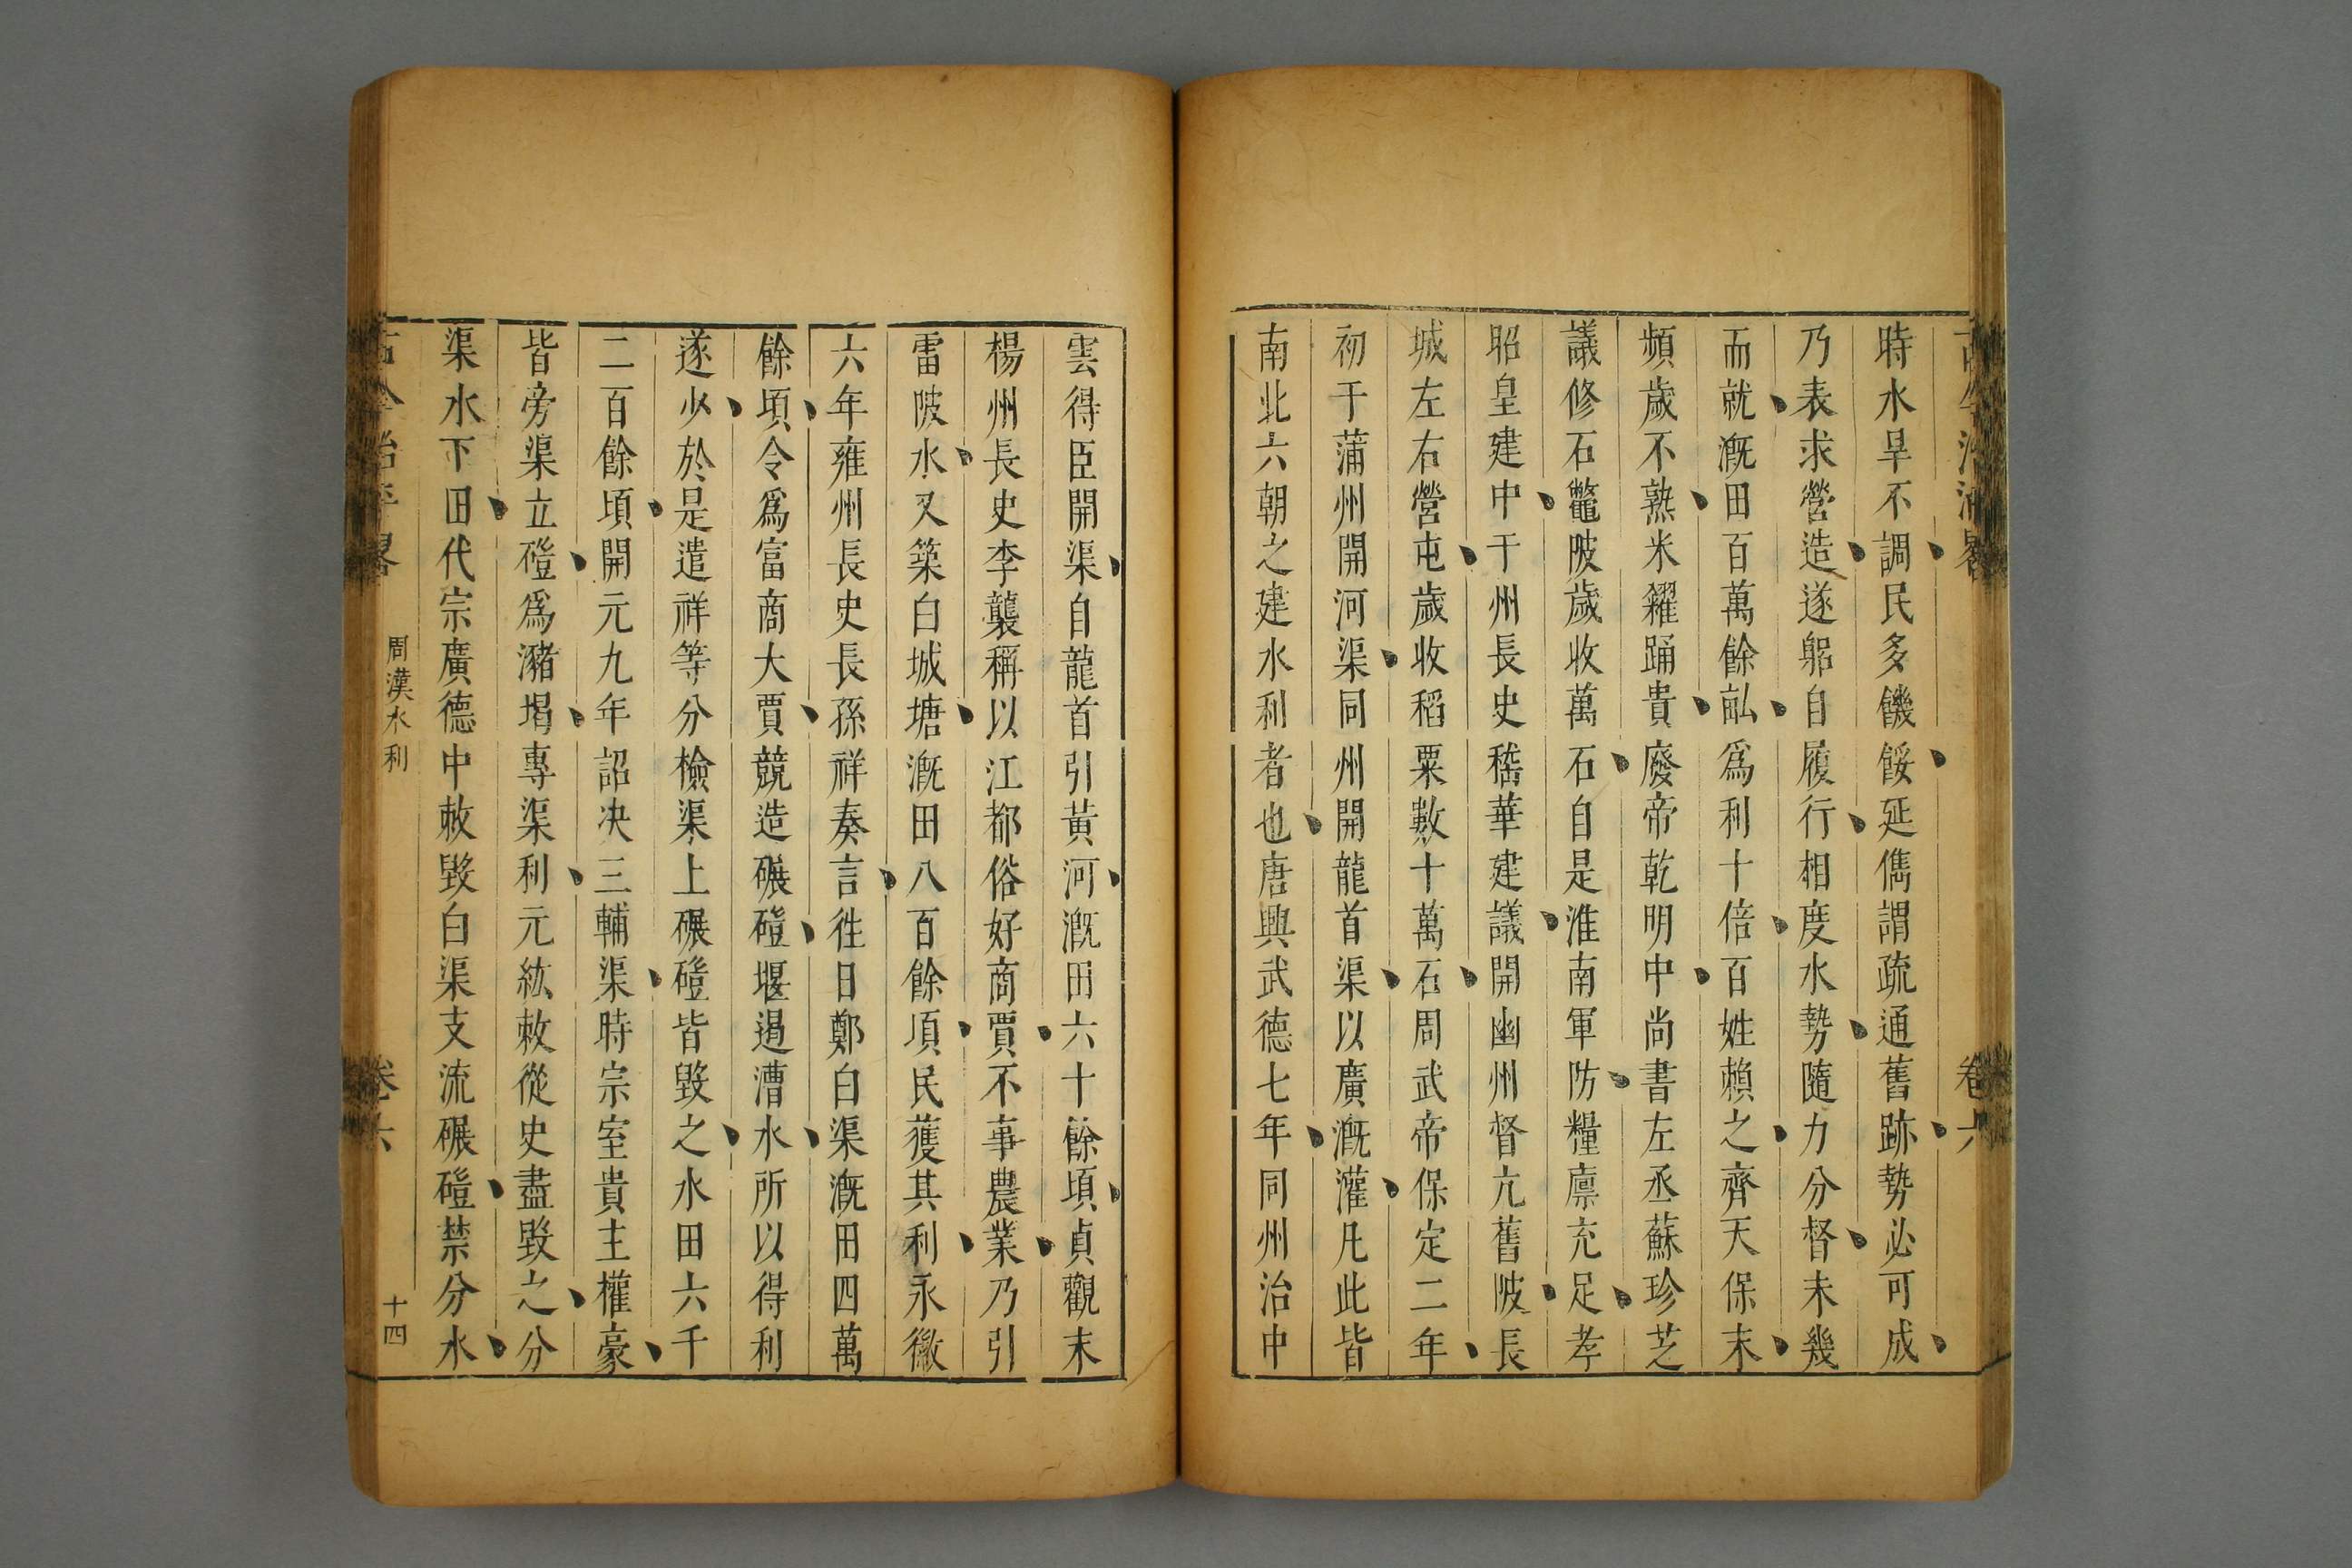 時水旱不調民多饑餒延儁謂疏通舊跡勢必可成
乃表求營造遂躬自履行相度水勢隨力分督未幾
而就溉田百萬餘畆爲利十倍百姓賴之齊天保末
頻歲不熟米糴踊貴廢帝乾明中尚書左丞蘇珍芝
議修石鼈陂歲收萬石自是淮南軍防糧廪充足孝
昭皇建中干州長史嵇華建議開幽州督亢舊陂長
城左右營屯歲收稻粟數十萬石周武帝保定二年
初于蒲州開河渠同州開龍首渠以廣溉灌凡此皆
南北六朝之建水利者也唐興武德七年同州治中
雲得臣開渠自龍首引黃河溉田六十餘頃貞觀末
楊州長史李襲稱以江都俗好商賈不事農業乃引
雷陂水又築白城塘溉田八百餘項民獲其利永徽
六年雍州長史長孫祥奏言徃日鄭白渠溉田四萬
餘頃令爲富商大賈競造碾磑堰遏漕水所以得利
遂少於是遣祥等分檢渠上碾磑皆毀之水田六千
二百餘頃開元九年詔决三輔渠時宗室貴主權豪
皆旁渠立磑爲瀦堨專渠利元紘敕從史盡毀之分
渠水下田代宗廣德中敕毀白渠支流碾磑禁分水
古今治平畧
周漢水利
卷六
十四